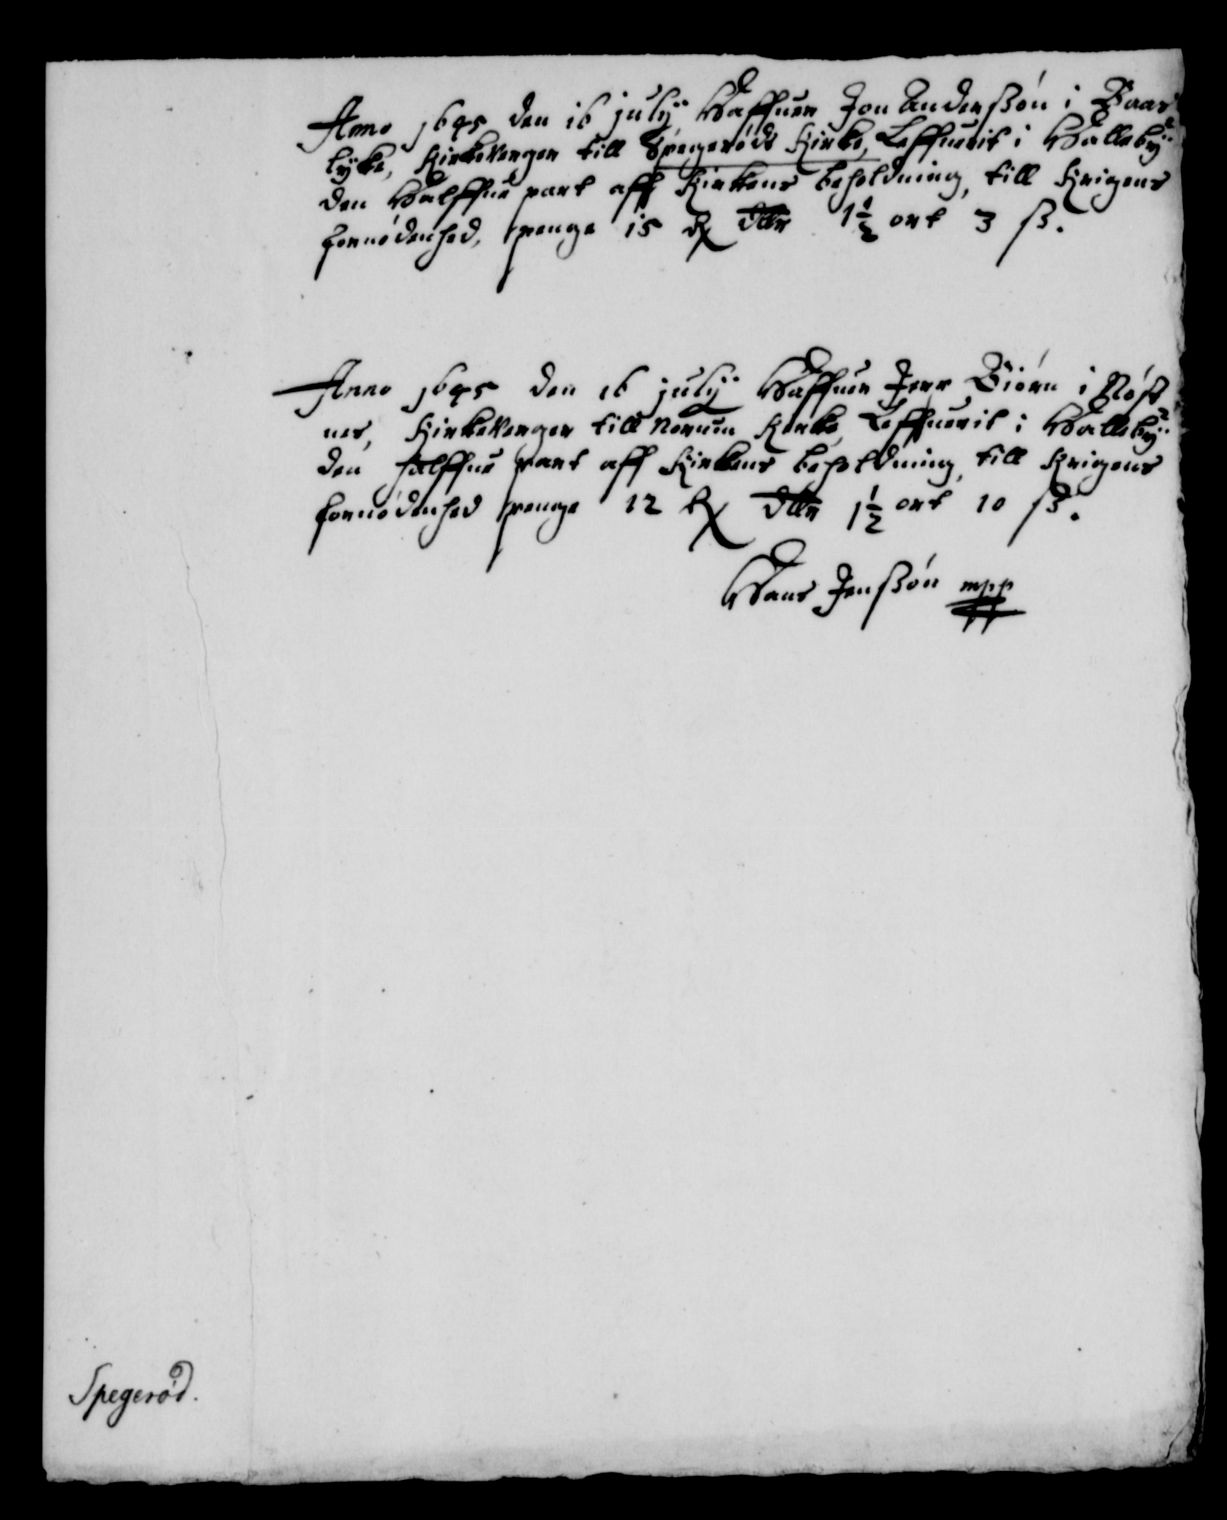 Anno 1645 den 16 julÿ Haffuer Jon Anderßøn i Baas
lÿcke, Kirkeverger till Spegerøds Kirke, Leffuerit i Hallebÿ
den Halffue part aff Kirkens beholdning, till Krigens
fornødenhed, penge 15 Rx dllr 1½ ort 3 ß.
Anno 1645 den 16 julÿ Haffuer Jerr Biørn i Røst
nes, Kirkeverger till Norum Kirke, Leffuerit i Hallebÿ
den halffue part aff Kirkens beholdning, till Krigens
fornødenhed penge 12 Rx dllr 1½ ort 10 ß.
Hans Jenßøn mpp
Spegerød.